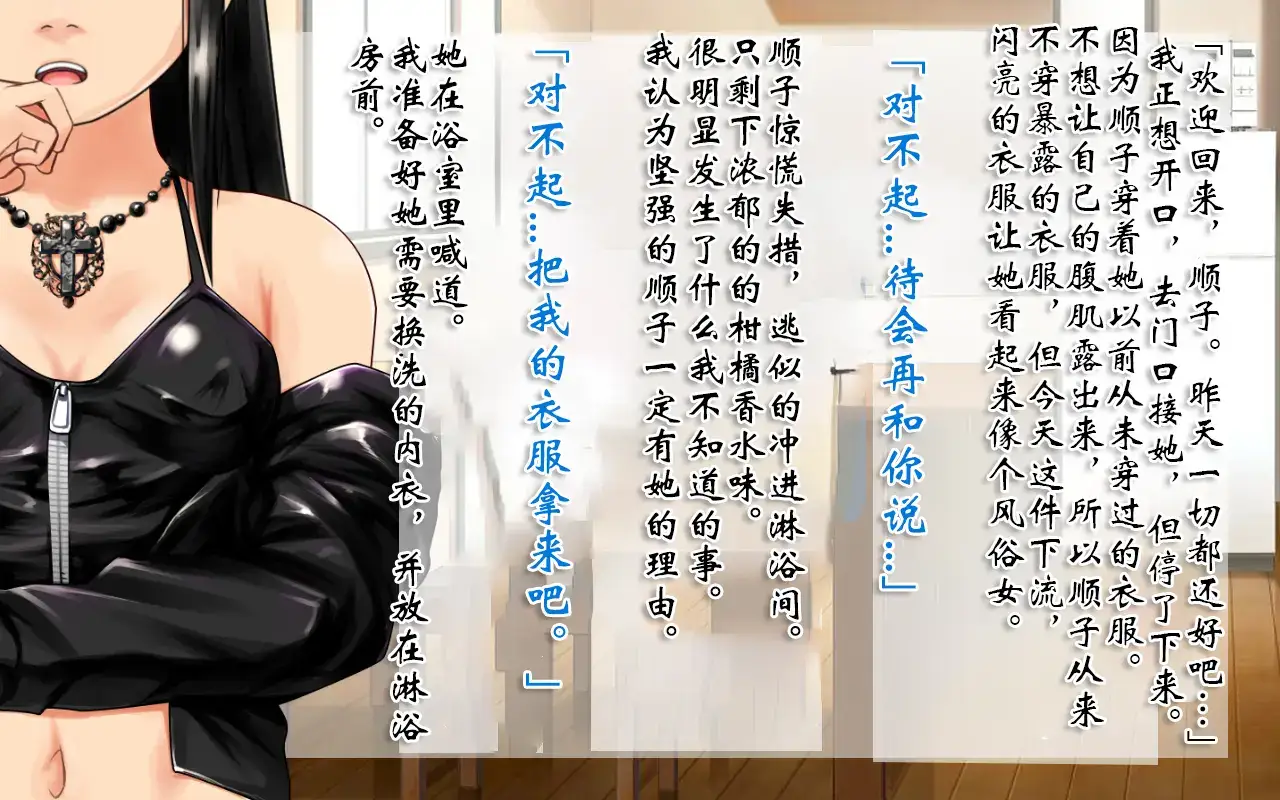 「欢迎回来，顺子。昨天一切都还好吧…」
我正想开口，去门口接她，但停了下来。
因为顺子穿着她以前从未穿过的衣服。
不想让自己的腹肌露出来，所以顺子从来
不穿暴露的衣服，但今天这件下流，
闪亮的衣服让她看起来像个风俗女。
「对不起…待会再和你说…」
顺子惊慌失措，逃似的冲进淋浴间。
只剩下浓郁的的柑橘香水味。
很明显发生了什么我不知道的事。
我认为坚强的顺子一定有她的理由。
「对不起…把我的衣服拿来吧。」
她在浴室里喊道。
我准备好她需要换洗的内衣，并放在淋浴
房前。